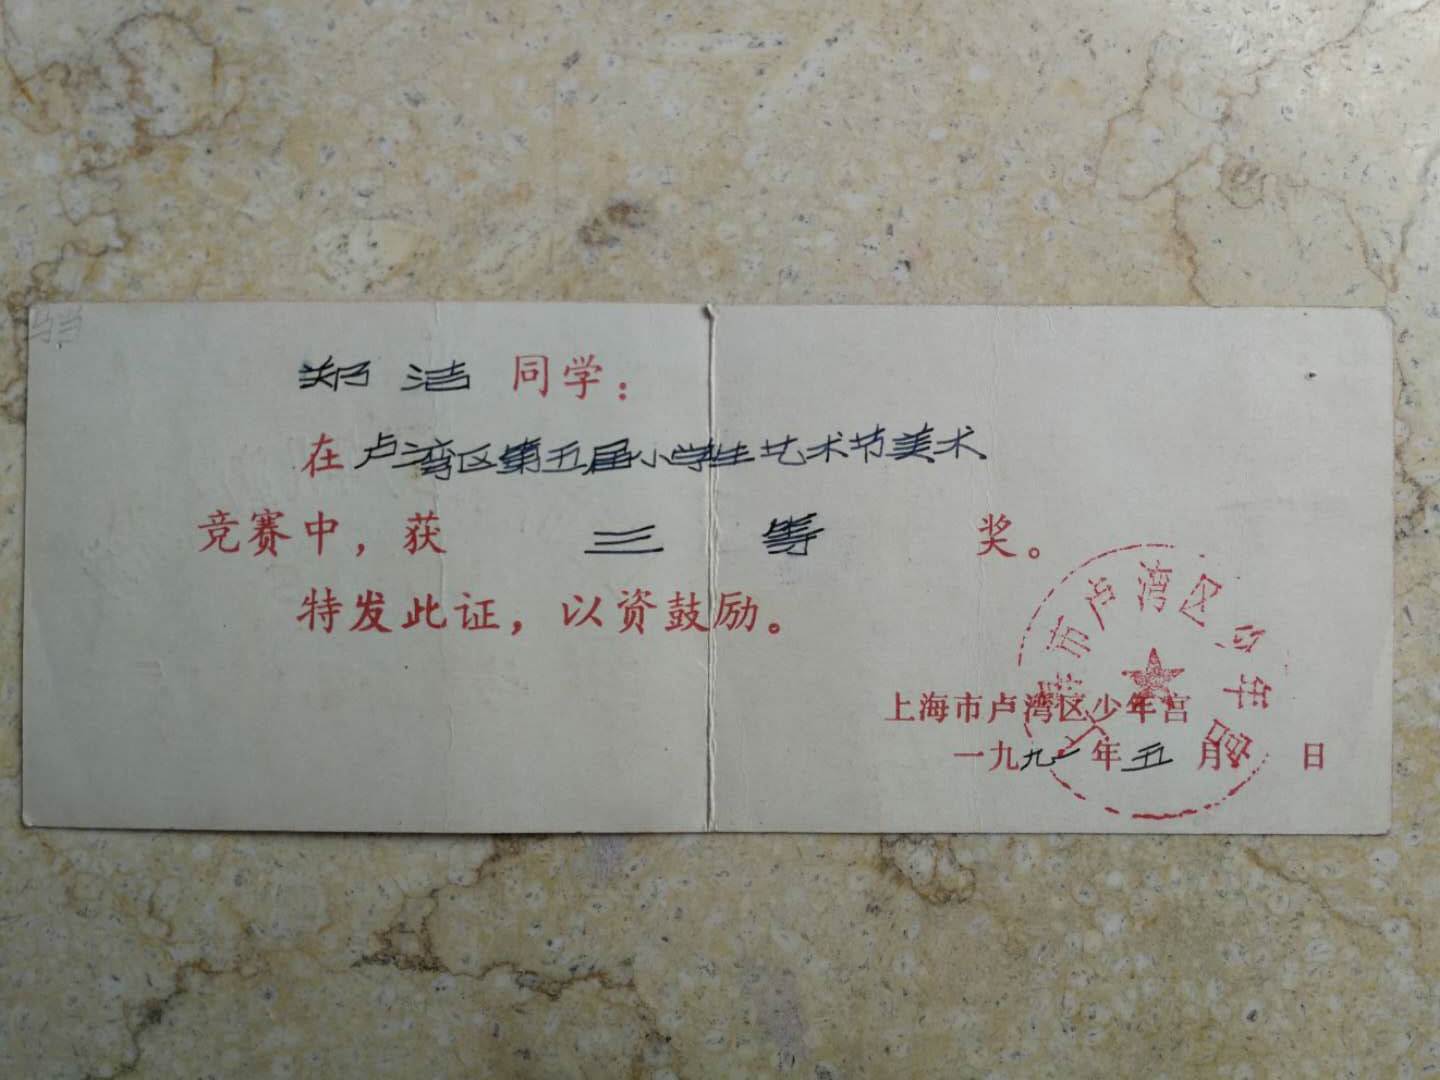 郑洁同学：
在卢湾区第五届小学生艺术节美术
竞赛中，获 三等 奖。
特发此证，以资鼓励。
上海市卢湾区少年宫
一九九一年五月 日
上海市卢湾区少年宫